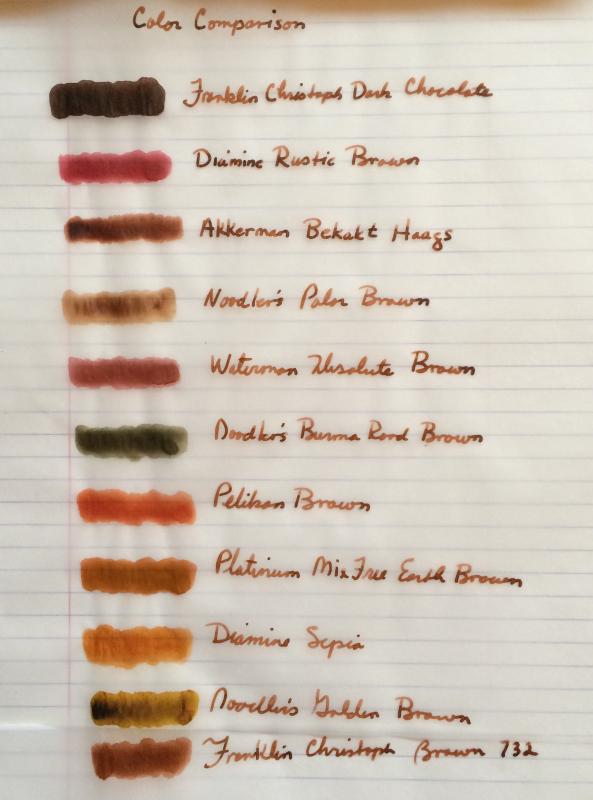 Color Comparison
Franklin Christoph Dark Chocolate
Diamine Rustic Brown
Akkerman Bekakt Haags
Noodler's Polar Brown
Waterman Absolute Brown
Noodler's Burma Road Brown
Pelikan Brown
Platinum Mix Free Earth Brown
Diamine Sepia
Noodler's Golden Brown
Franklin Christoph Brown 732